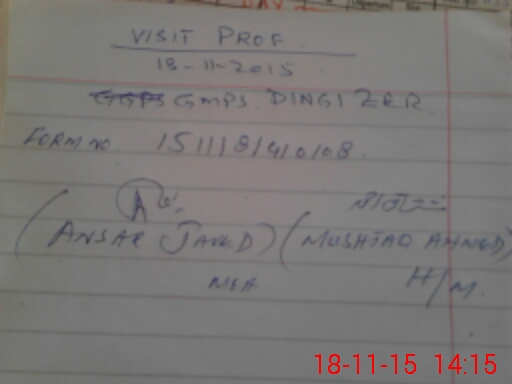 VISIT PROF.
18-11-2015
GMPS DINGI ZER
FORM NO. 151118140108
(ANSAR JAVED) (MUSHTAQ AHMED)
MEA H/M.
18-11-15 14:15